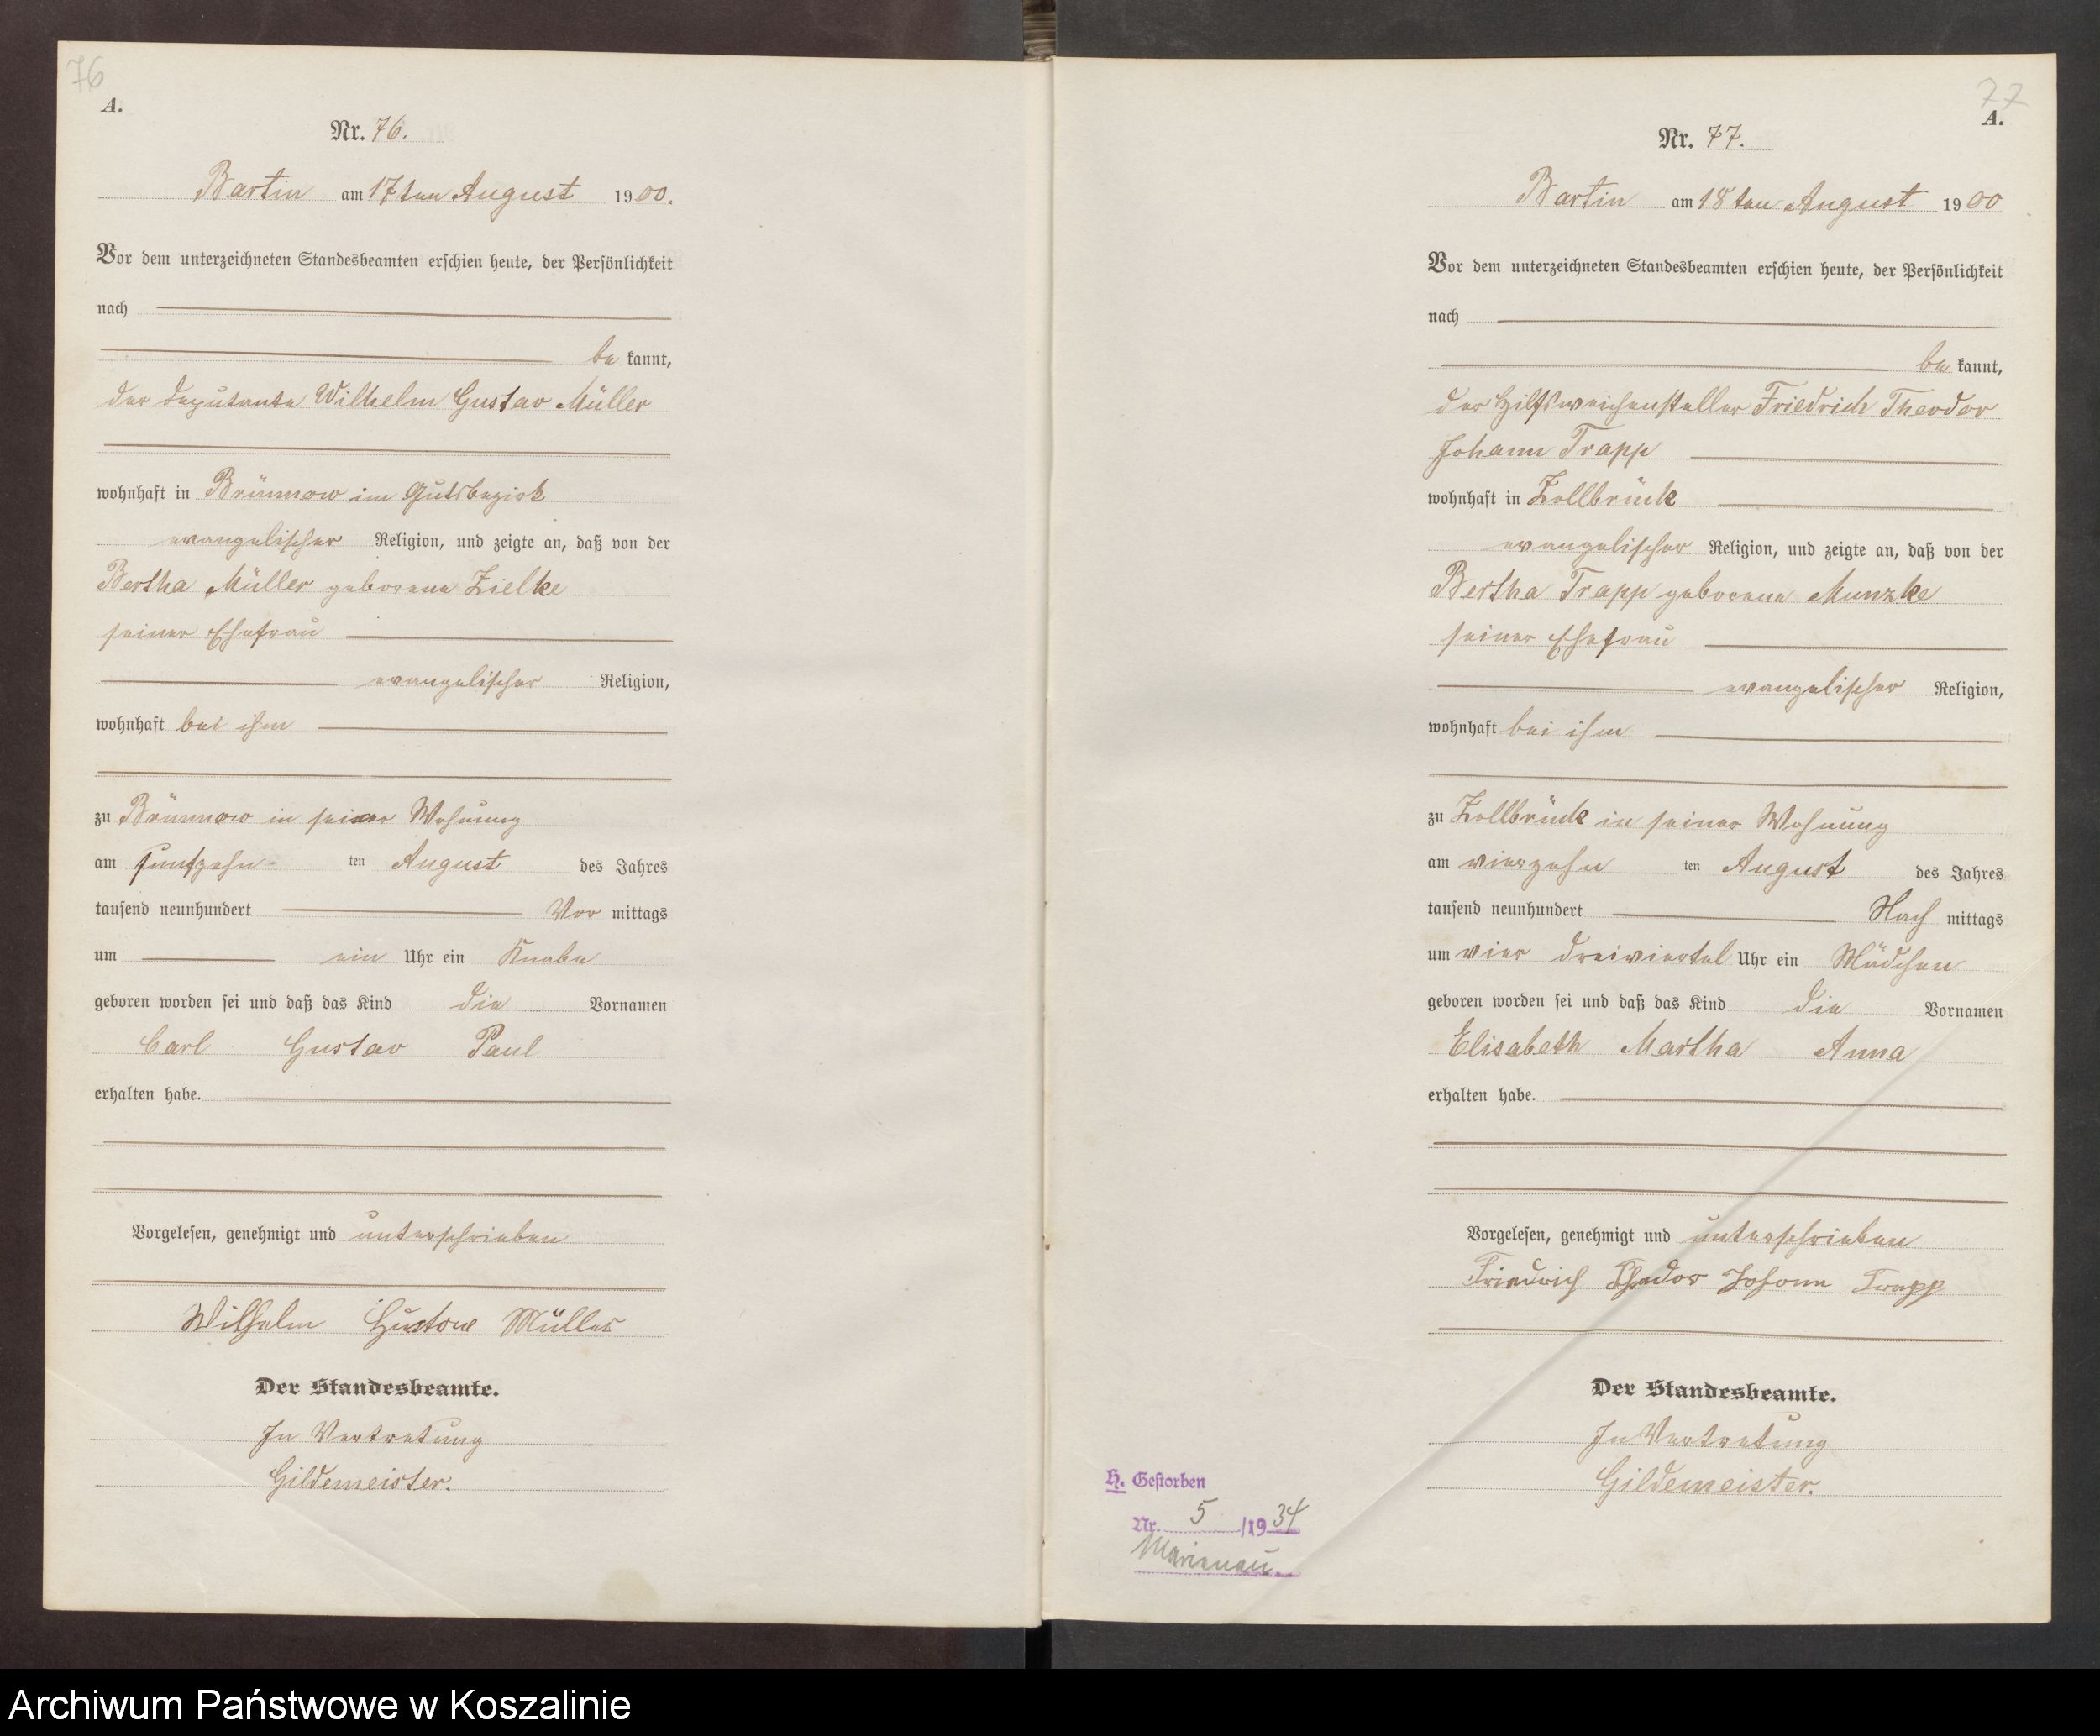 76
A.
Nr. 76.
Bartin am 17ten August 1900.
Vor dem unterzeichneten Standesbeamten erschien heute, der Persönlichkeit
nach
be kannt,
der Deputante Wilhelm Gustav Müller
wohnhaft in Brünnow im Gutsbezirk
evangelischer Religion, und zeigte an, daß von der
Bertha Müller geborene Zielke
seiner Ehefrau
evangelischer Religion,
wohnhaft bei ihm
zu Brünnow in seiner Wohnung
am fünfzehn ten August des Jahres
tausend neunhundert Vor mittags
um ein Uhr ein Knabe
geboren worden sei und daß das Kind die Vornamen
Carl Gustav Paul
erhalten habe.
Vorgelesen, genehmigt und unterschrieben
Wilhelm Gustav Müller
Der Standesbeamte.
In Vertretung
Gildemeister.
77
A.
Nr. 77.
Bartin am 18ten August 1900
Vor dem unterzeichneten Standesbeamten erschien heute, der Persönlichkeit
nach
be kannt,
der Hilfsweichensteller Friedrich Theodor
Johann Trapp
wohnhaft in Zollbrück
evangelischer Religion, und zeigte an, daß von der
Bertha Trapp geborene Munzke
seiner Ehefrau
evangelischer Religion,
wohnhaft bei ihm
zu Zollbrück in seiner Wohnung
am vierzehn ten August des Jahres
tausend neunhundert Nach mittags
um vier dreiviertel Uhr ein Mädchen
geboren worden sei und daß das Kind die Vornamen
Elisabeth Martha Anna
erhalten habe.
Vorgelesen, genehmigt und unterschrieben
Friedrich Theodor Johann Trapp
Der Standesbeamte.
In Vertretung
Gildemeister.
H. Gestorben
Nr. 5 /1934
Marienau
Archiwum Państwowe w Koszalinie